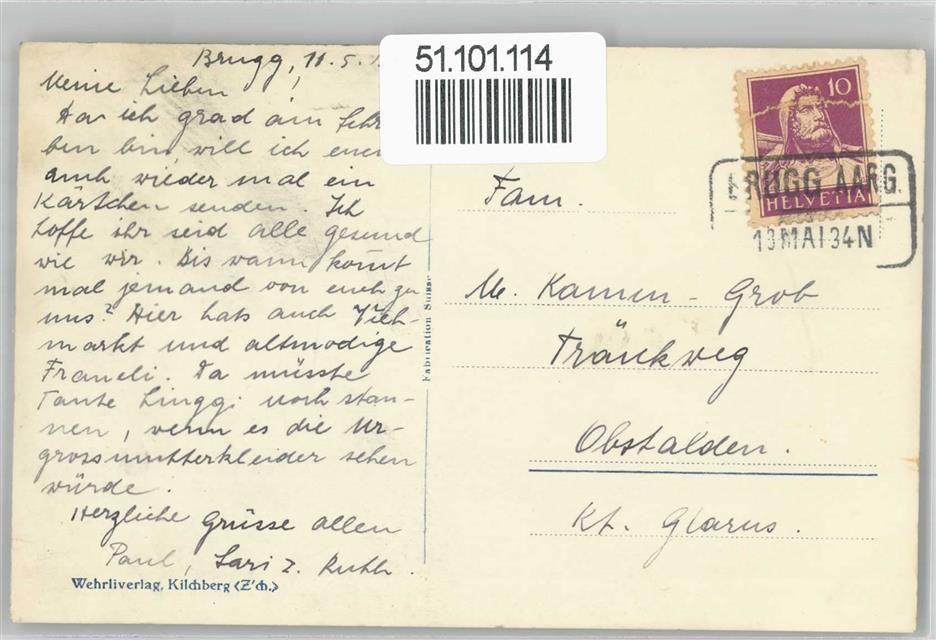 51.101.114
Brugg, 11.5.
Meine Lieben
Da ich grad am Schr
ben bin, will ich euch
auch wieder mal ein
Kärtchen senden. Ich
hoffe ihr seid alle gesund
wie wir. Bis wann kommt
mal jemand von euch zu
uns? Hier hats auch Vieh-
markt und altmodige
Fraueli. Da müsste
Tante Linggi noch stau-
nen, wenn es die Ur-
grossmutterkleider sehen
würde.
Herzliche Grüsse allen
Paul,
Wehrliverlag, Kilchberg (Z'ch.)
Fabrication Suisse
10
HELVETIA
BRUGG AARG.
13 MAI 34 N
Fam.
M. Kamm - Grob
Tränkweg
Obstalden.
Kt. Glarus.